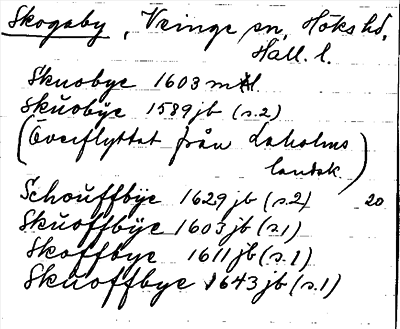 Skogaby, Veinge sn, Höks hd,
Hall. l.
Skuobye 1603 mtl
Skŭobÿe 1589 jb (s.2)
(Överflyttat från Laholms
landsk)
Schoŭffbÿe 1629 jb (s.2) 20
Skŭoffbÿe 1603 jb (s.1)
Skoffbye 1611 jb (s.1)
Skŭoffbye 1643 jb (s.1)